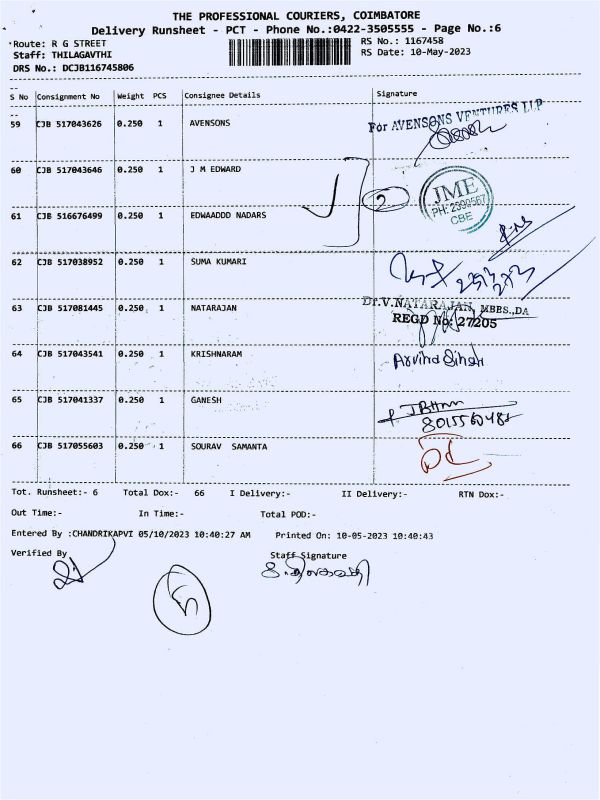 THE PROFESSIONAL COURIERS, COIMBATORE
Delivery Runsheet - PCT - Phone No.:0422-3505555 - Page No.:6
Route: R G STREET
RS No.: 1167458
Staff: THILAGAVTHI
RS Date: 10-May-2023
DRS No.: DCJB116745806
S No Consignment No Weight PCS Consignee Details Signature
59 CJB 517043626 0.250 1 AVENSONS
For AVENSONS VENTURES LLP
60 CJB 517043646 0.250 1 J M EDWARD
JME
PH: 2390567
CBE
61 CJB 516676499 0.250 1 EDWAADDD NADARS
62 CJB 517038952 0.250 1 SUMA KUMARI
63 CJB 517081445 0.250 1 NATARAJAN
Dr.V.NATARAJAN, MBBS.,DA
REGD No: 27205
64 CJB 517043541 0.250 1 KRISHNARAM
65 CJB 517041337 0.250 1 GANESH
66 CJB 517055603 0.250 1 SOURAV SAMANTA
Tot. Runsheet:- 6 Total Dox:- 66 I Delivery:- II Delivery:- RTN Dox:-
Out Time:- In Time:- Total POD:-
Entered By :CHANDRIKAPVI 05/10/2023 10:40:27 AM Printed On: 10-05-2023 10:40:43
Verified By Staff Signature